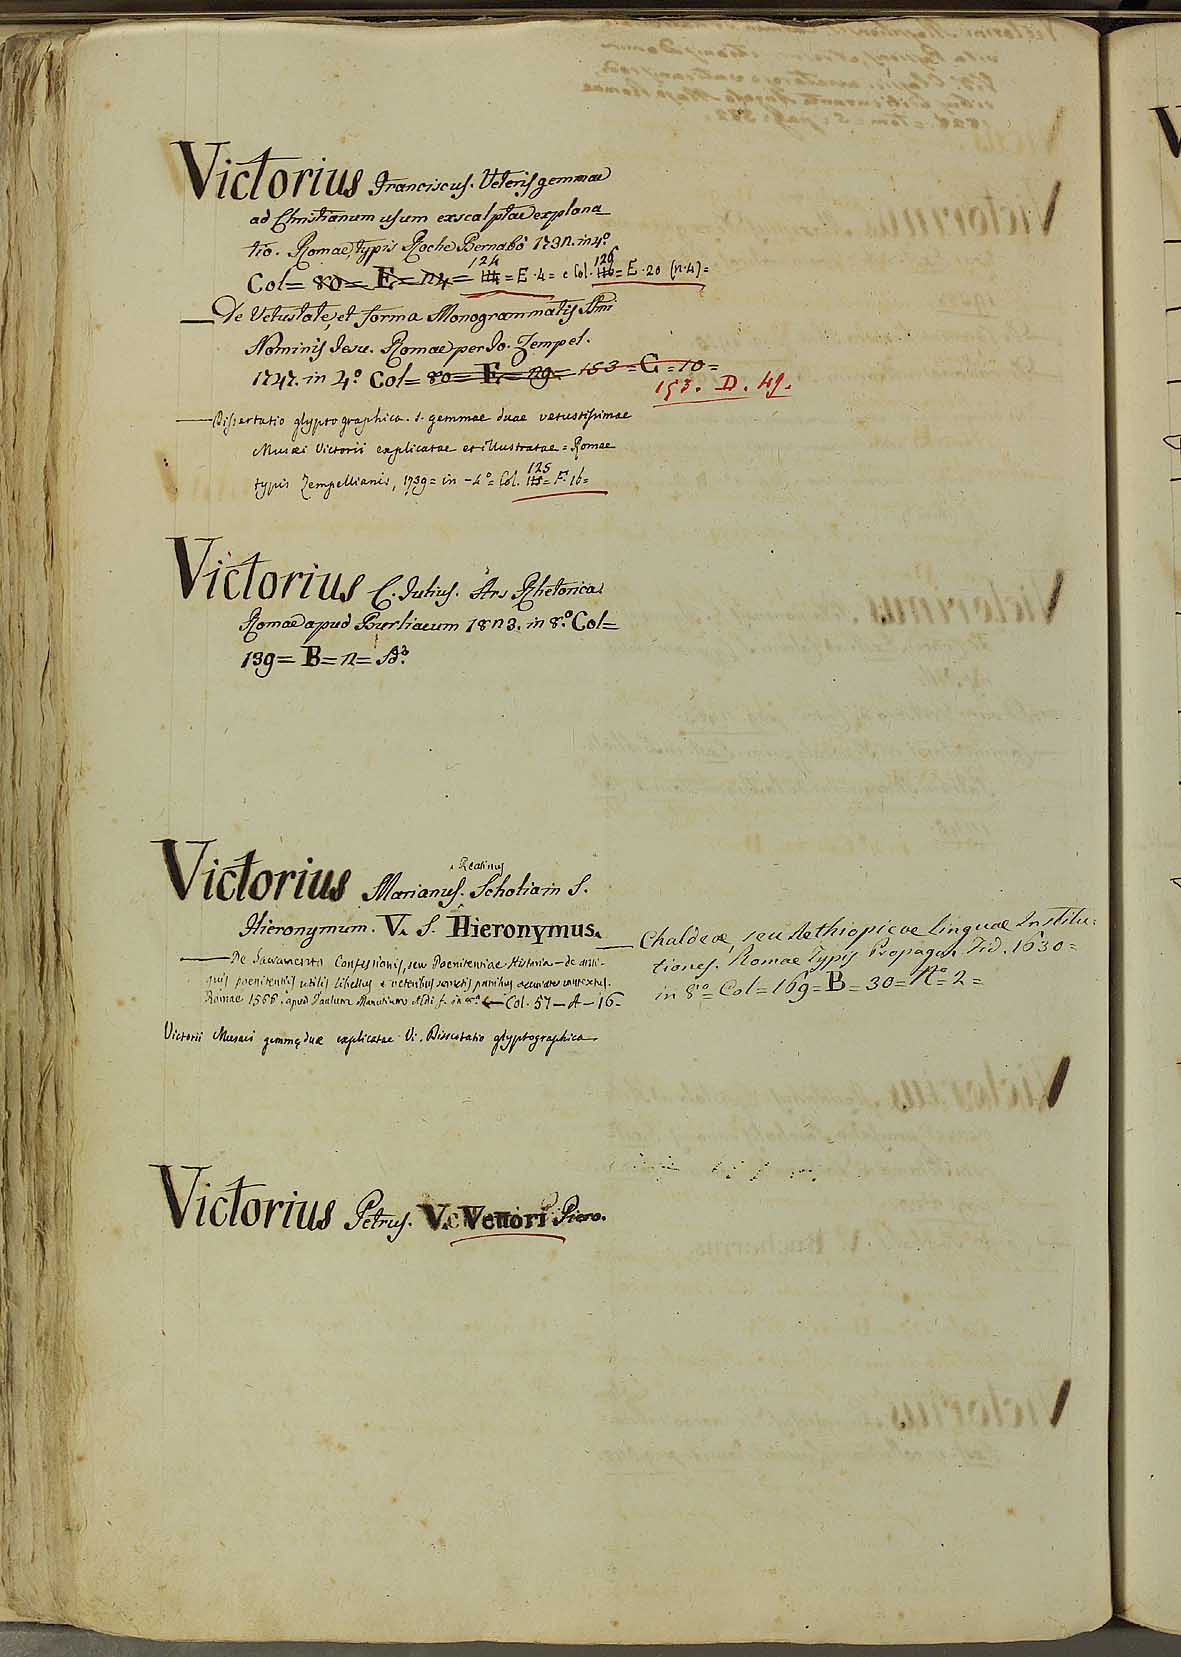 Victorius Franciscus. Veteris gemmae
ad Christianum usum exscalptae explana
tio. Romae, typis Roche Bernabò 1732. in 4.º
124 126
Col= 80= E= 24= = E. 4= e Col. = E. 20 (n. 4)=
— De Vetustate, et forma Monogrammatis Ssmi
Nominis Jesu. Romae per Jo. Zempel.
1747. in 4.º Col= 80= E= 29= 153= G= 10=
153. D. 49.
— Dissertatio glyptographica. s. gemmae duae vetustissimae
Musaei Victorii explicatae et illustratae = Romae
125
typis Zempellianis, 1739= in - 4º= Col. = F. 16=
Victorius C. Julius. Ars Rhetorica
Romae apud Burliaeum 1823. in 8.º Col=
139= B= 2=
Reatinus
Victorius Marianus. Scholia in S.
Hieronymum. V. S. Hieronymus.
— De Sacramento Confessionis, seu Poenitentiae Historia — de anti-
quis poenitentiis utilis libellus e veteribus sanctis patribus
Romae 1566. apud Paulum Manutium Aldi f. in 8.º Col. 57— A— 16-
— Chaldeae, seu Aethiopicae linguae Institu=
tiones. Romae Typis Propagan. Fid. 1630=
in 8º= Col= 169= B= 30= Nº= 2=
Victorii Musaei gemmę duae explicatae. Vi. Dissertatio glyptographica.
Victorius Petrus. V. Vettori Piero.